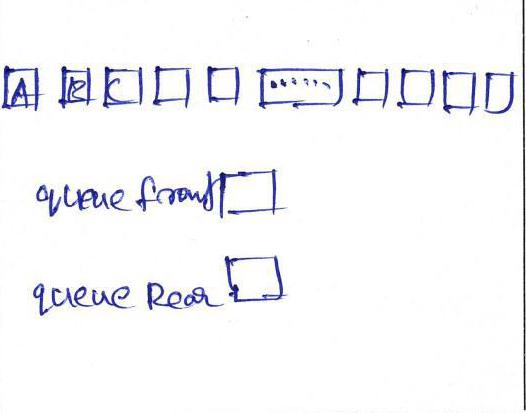 A B C ......
queue front
queue Rear